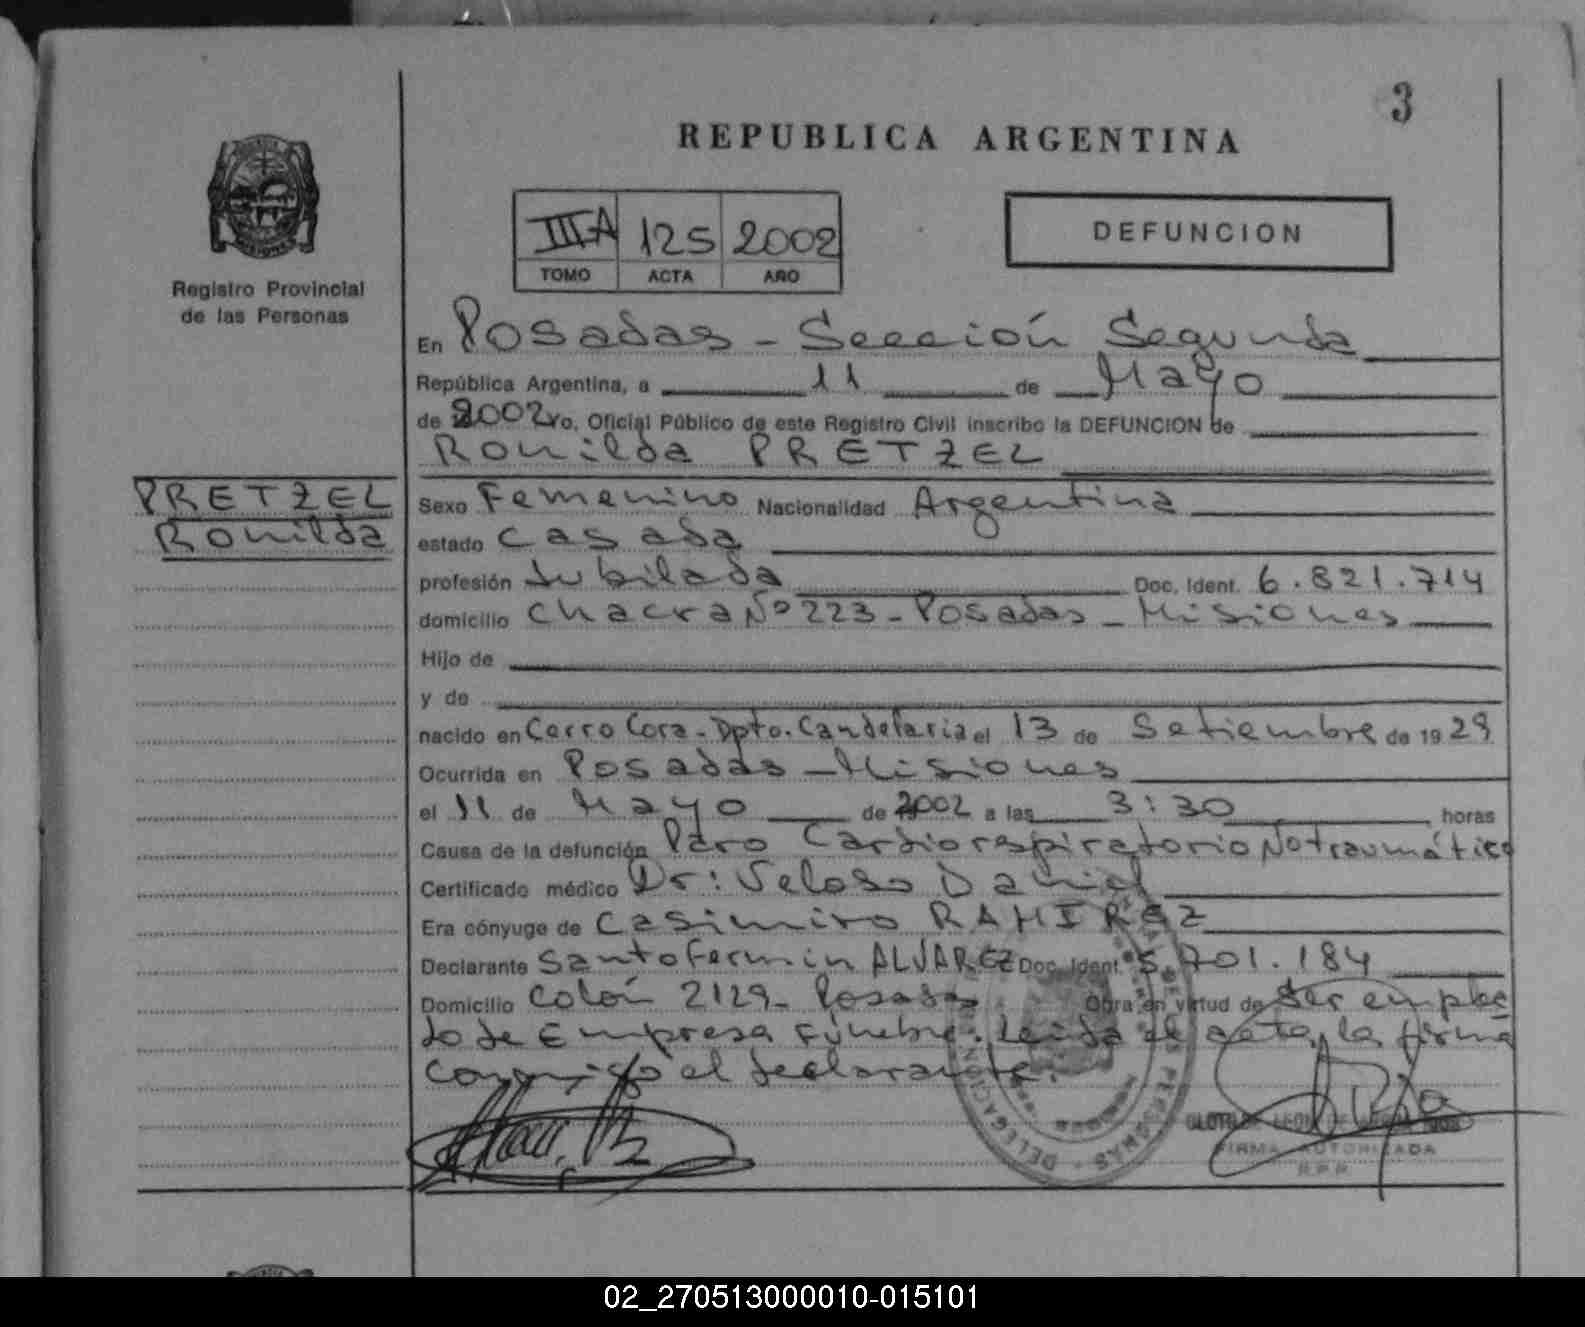 3
REPUBLICA ARGENTINA
IIIA 125 2002
TOMO ACTA AÑO
DEFUNCION
Registro Provincial
de las Personas
En Posadas - Sección Segunda
República Argentina, a 11 de Mayo
de 2002 yo, Oficial Público de este Registro Civil inscribo la DEFUNCION de
Romilda PRETZEL
PRETZEL
Romilda
Sexo Femenino Nacionalidad Argentina
estado Casada
profesión Jubilada Doc. Ident. 6.821.714
domicilio Chacra Nº 223 - Posadas - Misiones
Hijo de
y de
nacido en Cerro Cora - Dpto. Candelaria el 13 de Setiembre de 1929
Ocurrida en Posadas - Misiones
el 11 de Mayo de 2002 a las 3:30 horas
Causa de la defunción Paro Cardiorespiratorio No traumático
Certificado médico Dr: Veloso Daniel
Era cónyuge de Casimiro RAMIREZ
Declarante Santo Fermin ALVAREZ Doc. Ident. 5.701.184
Domicilio Colón 2129 - Posadas Obra en virtud de Ser emplea
do de Empresa Fúnebre. Leida el acta, la firma
conmigo el declarante.
FIRMA AUTORIZADA
R.P.P.
02_270513000010-015101